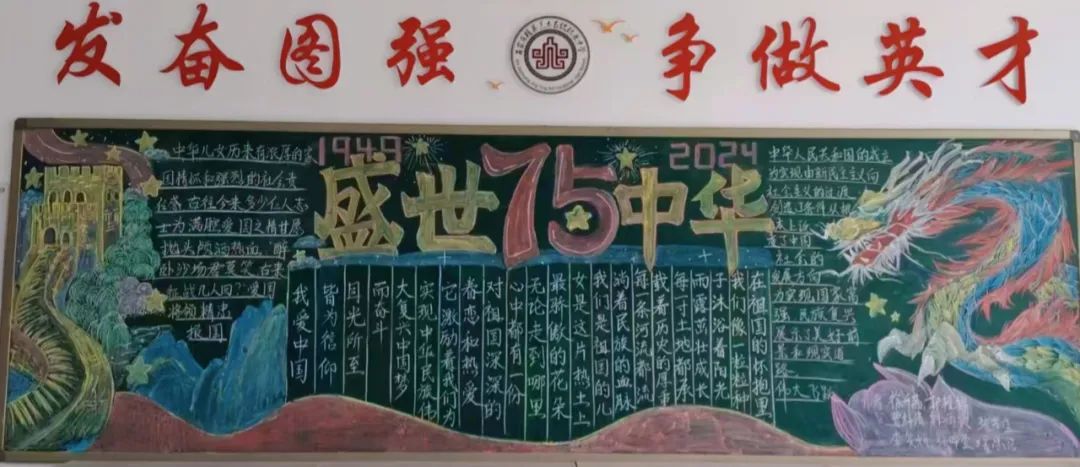 发奋图强 争做英才
1949 2024
盛世75中华
中华儿女历来有浓厚的家
国情怀和强烈的社会责
任感 古往今来多少仁人志
士为满腔爱国之情甘愿
抛头颅洒热血 醉
卧沙场君莫笑 古来
征战几人回？爱国
将领精忠
报国
在祖国的怀抱里
我们像一粒粒种
子沐浴着阳光
雨露茁壮成长
每一寸土地都承
载着历史的厚重
每一条河流都流
淌着民族的血脉
我们是祖国的儿
女是这片热土上
最骄傲的花朵
无论走到哪里
心中都有一份
对祖国深深的
眷恋和热爱
它激励着我们为
实现中华民族伟
大复兴中国梦
而奋斗
目光所至
皆为信仰
我爱中国
中华人民共和国的成立
为实现由新民主主义向
社会主义的过渡
创造了条件从根
社会的
发展方向
为实现国家富
强 民族复兴
展示了美好前
景和现实道
路
伟大飞跃